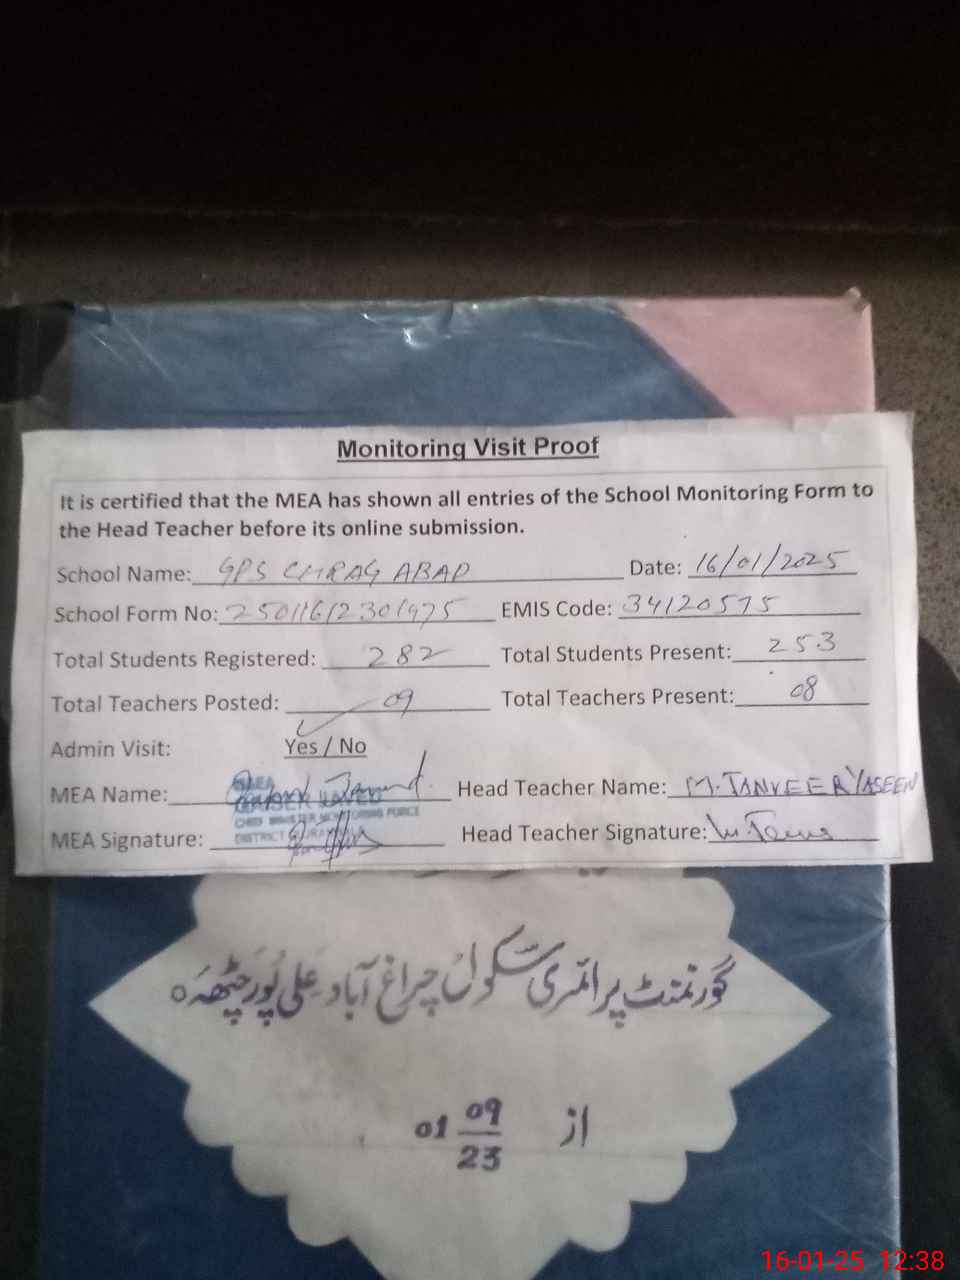 Monitoring Visit Proof
It is certified that the MEA has shown all entries of the School Monitoring Form to
the Head Teacher before its online submission.
School Name: GPS CHRAG ABAD Date: 16/01/2025
School Form No: 25011612301975 EMIS Code: 34120575
Total Students Registered: 282 Total Students Present: 253
Total Teachers Posted: 09 Total Teachers Present: 08
Admin Visit: Yes / No
MEA Name: Head Teacher Name: M. TANVEER YASEEN
MEA
CHIEF MINISTER MONITORING FORCE
MEA Signature: DISTRICT Head Teacher Signature:
گورنمنٹ پرائمری سکول چراغ آباد علی پور چٹھہ
از 01 09/23
16-01-25 12:38